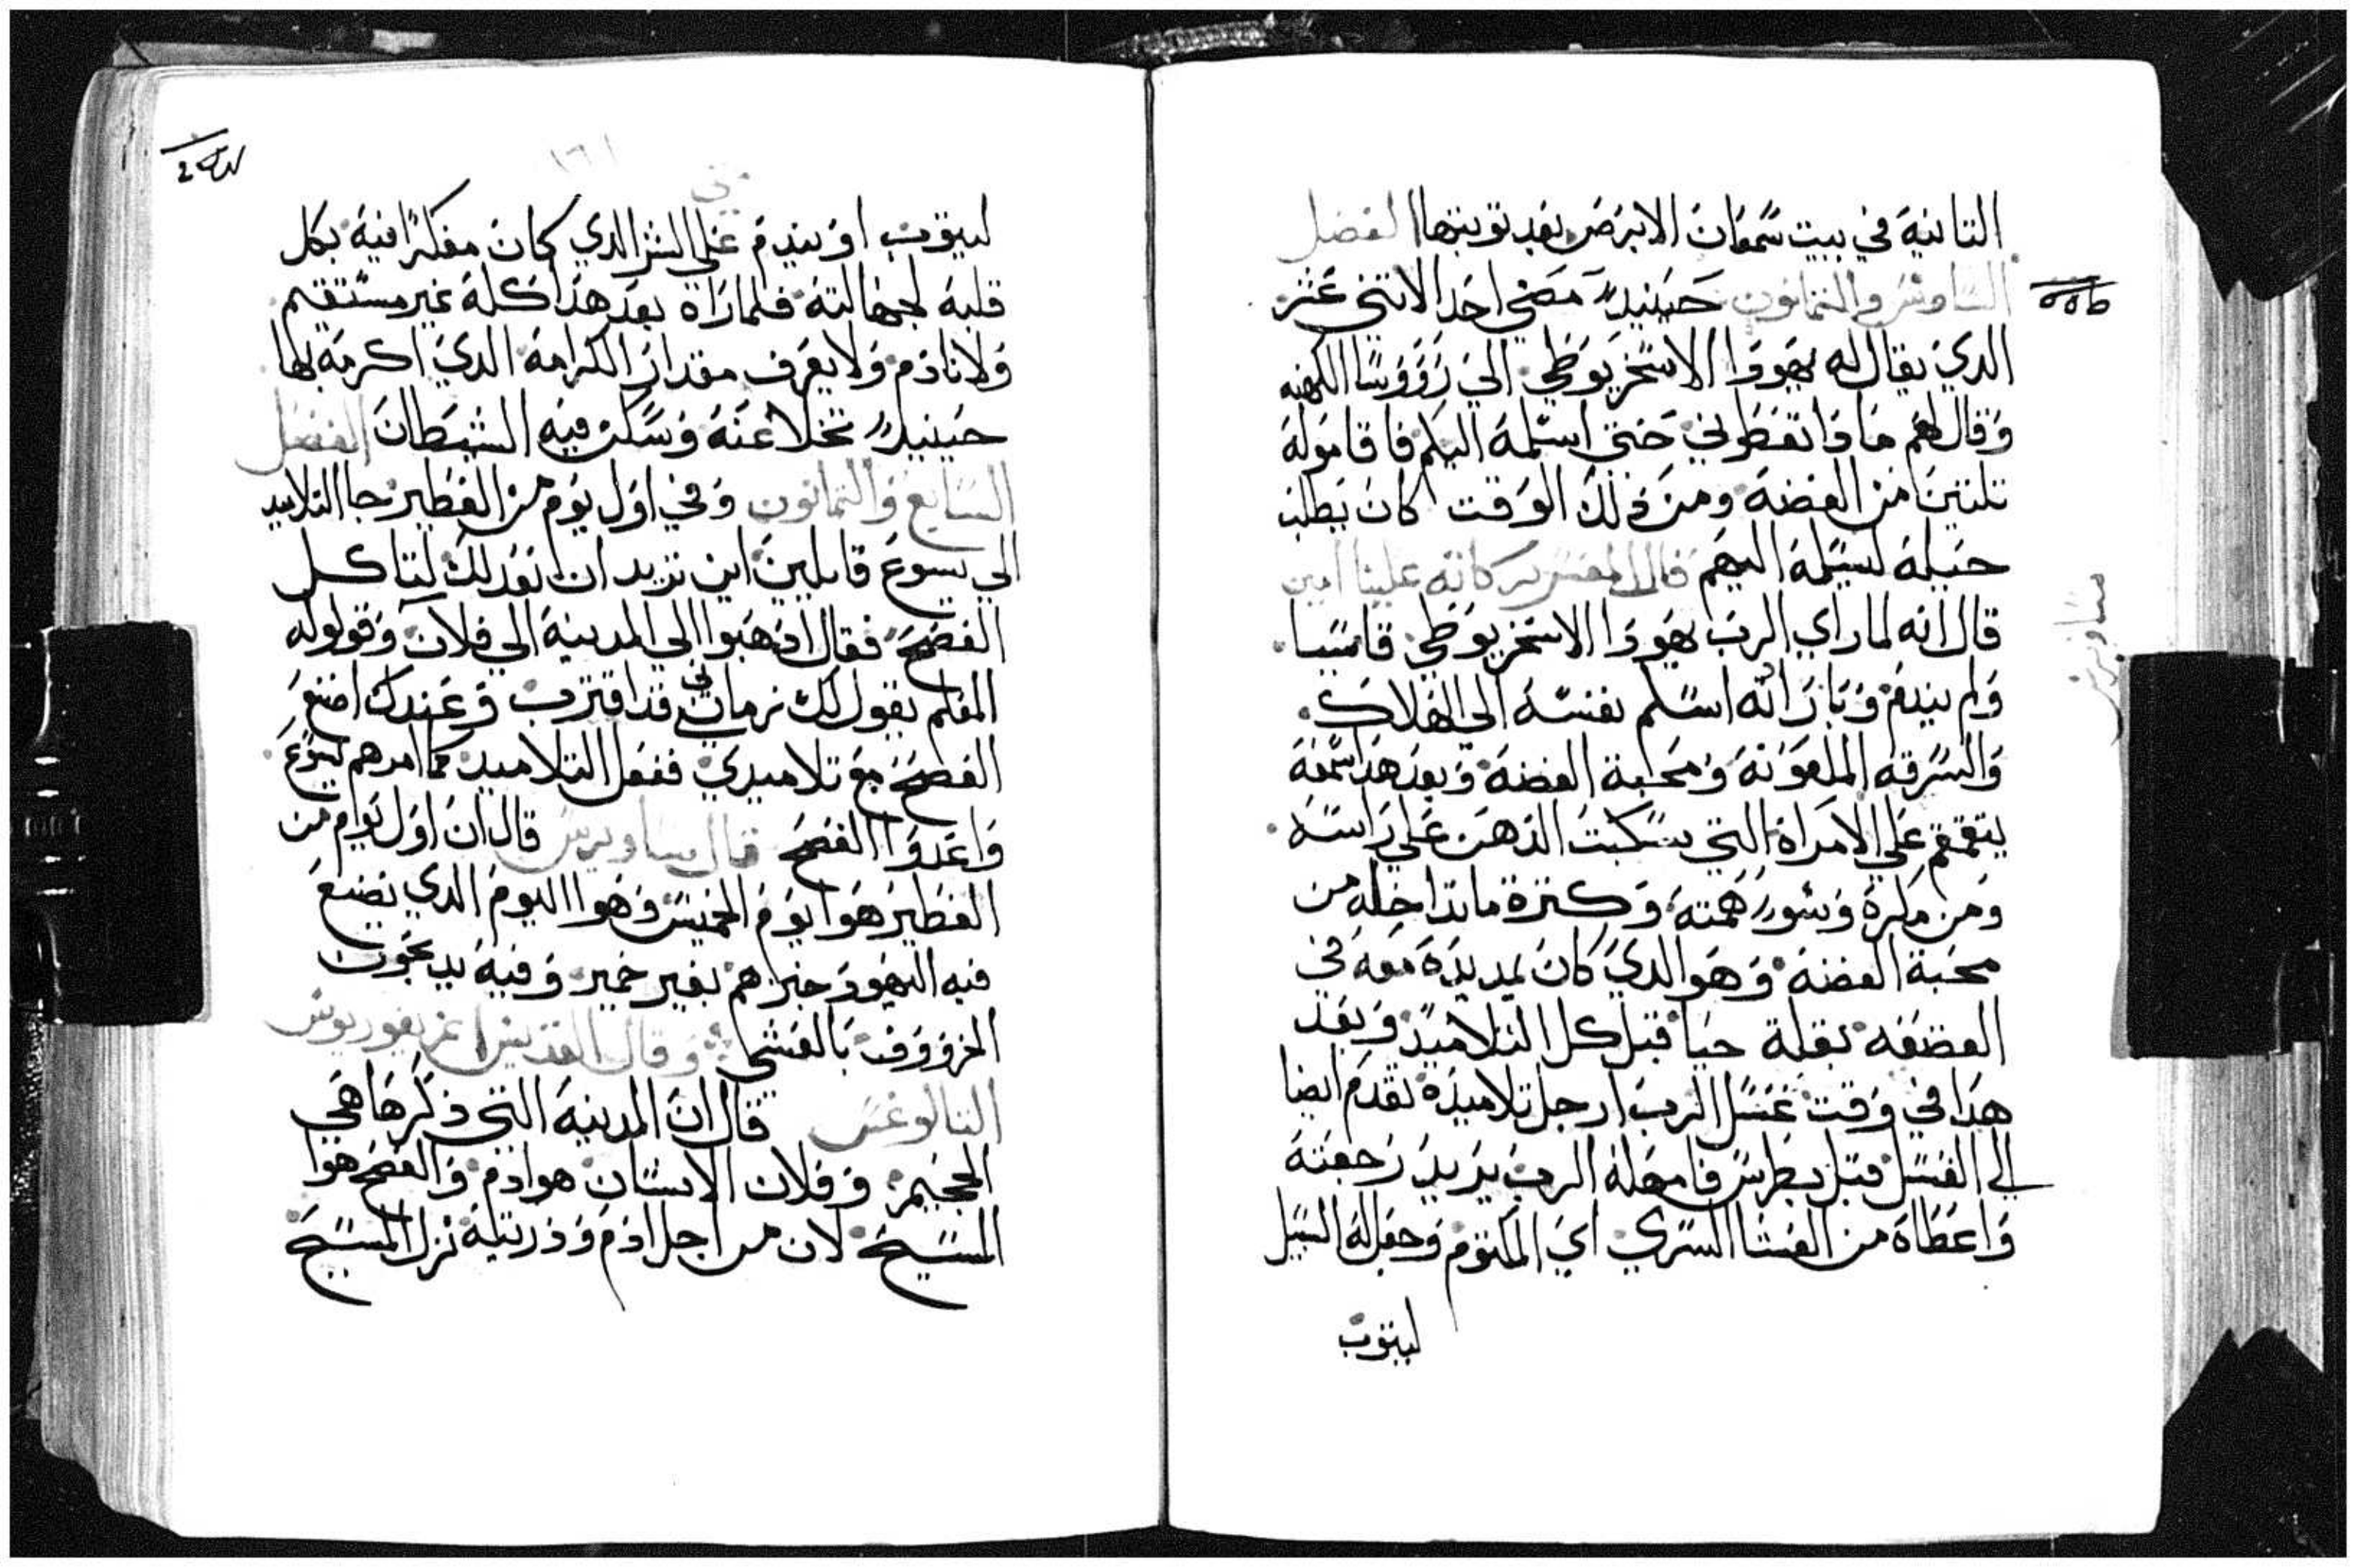 التانيه في بيت سمعان الابرص بعد توبتها الفصل
السادس والتمانون حينيد مضي احد الاتني عشر
الدي يقال له يهودا الاسخريوطي الي رووسا الكهنه
وقال لهم مادا تعطوني حتي اسلمه اليكم فاقاموله
تلتين من الفضه ومن دلك الوقت كان يطلب
حيله ليسلمه اليهم قال المفسر بركاته علينا امين
ساويرس
قال انه لما راي الرب يهودا الاسخريوطي قاسيا
ولم يندم وبان انه اسلم نفسه الي الهلاك
والسرقه الملعونه ومحبة الفضه وبعد هدا سمعه
يتقمقم علي الامراه التي سكبت الدهن علي راسه
ومن مكره وشور همته وكترة ماتداخله من
محبة الفضه وهو الدي كان يمد يده معه في
القصعه بقلة حيا قبل كل التلاميد وبعد
هدا في وقت غسل الرب ارجل تلاميده تقدم ايضا
الي الغسل قبل بطرس فامهله الرب يريد رجعته
واعطاه من العشا السري اي المكتوم وجعل له السبيل
ليتوب
متي
١٦١
ليتوب او يندم علي الشر الدي كان مفكرا فيه بكل
قلبه لجهالته فلما راه بعد هدا كله غير مستقيم
ولا نادم ولا يعرف مقدار الكرامه الدي اكرمه بها
حينيد تخلا عنه وسكن فيه الشيطان الفصل
السابع والتمانون وفي اول يوم من الفطير جا التلاميد
الي يسوع قايلين اين تريد ان نعد لك لتاكل
الفصح فقال ادهبوا الي المدينه الي فلان وقولوله
المعلم يقول لك زماني قد اقترب وعندك اصنع
الفصح مع تلاميدي ففعل التلاميد كما امرهم يسوع
واعدوا الفصح قال ساويرس قال ان اول يوم من
الفطير هوا يوم الخميس وهوا اليوم الدي يصنع
فيه اليهود خبزهم بغير خمير وفيه يدبحون
الخرووف بالعشي وقال القديس اغريغوريوس
التالوغس قال ان المدينه التي دكرها هي
الجحيم وفلان الانسان هو ادم والفصح هوا
المسيح لان من اجل ادم ودريته نزل المسيح